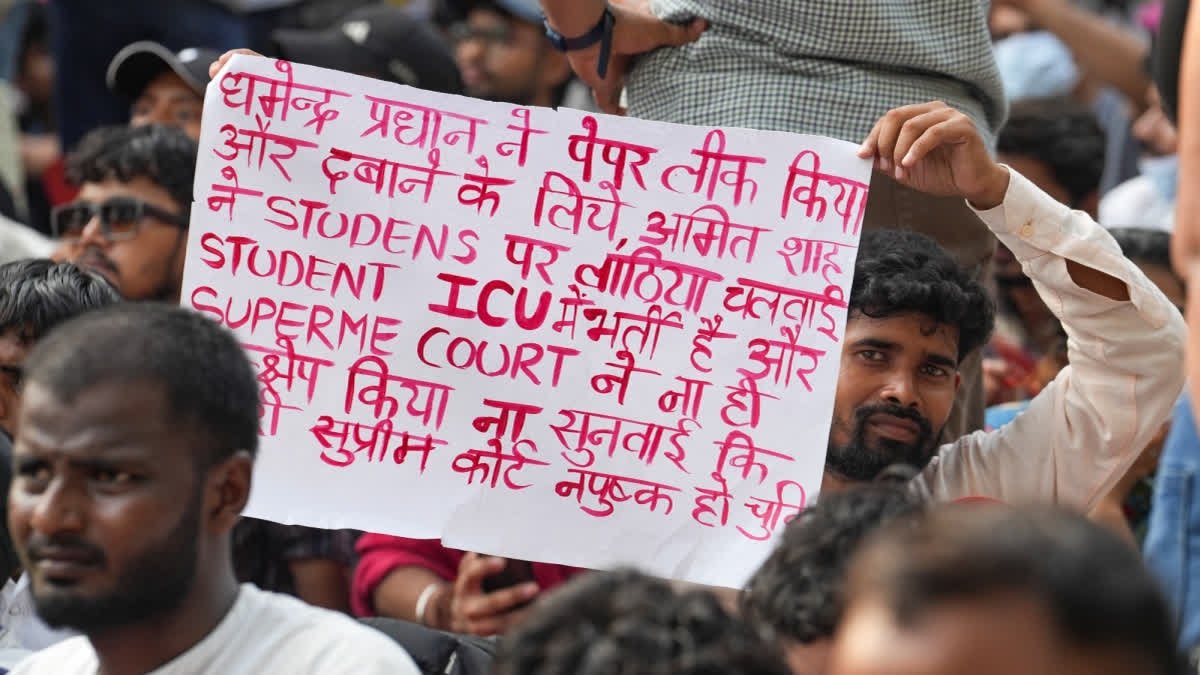 धर्मेन्द्र प्रधान ने पेपर लीक किया
और दबाने के लिये, अमित शाह
ने STUDENS पर लाठिया चलवाई
STUDENT ICU में भर्ती है और
SUPERME COURT ने ना ही
क्षेप किया ना सुनवाई कि
सुप्रीम कोर्ट नपुष्क हो चुकि